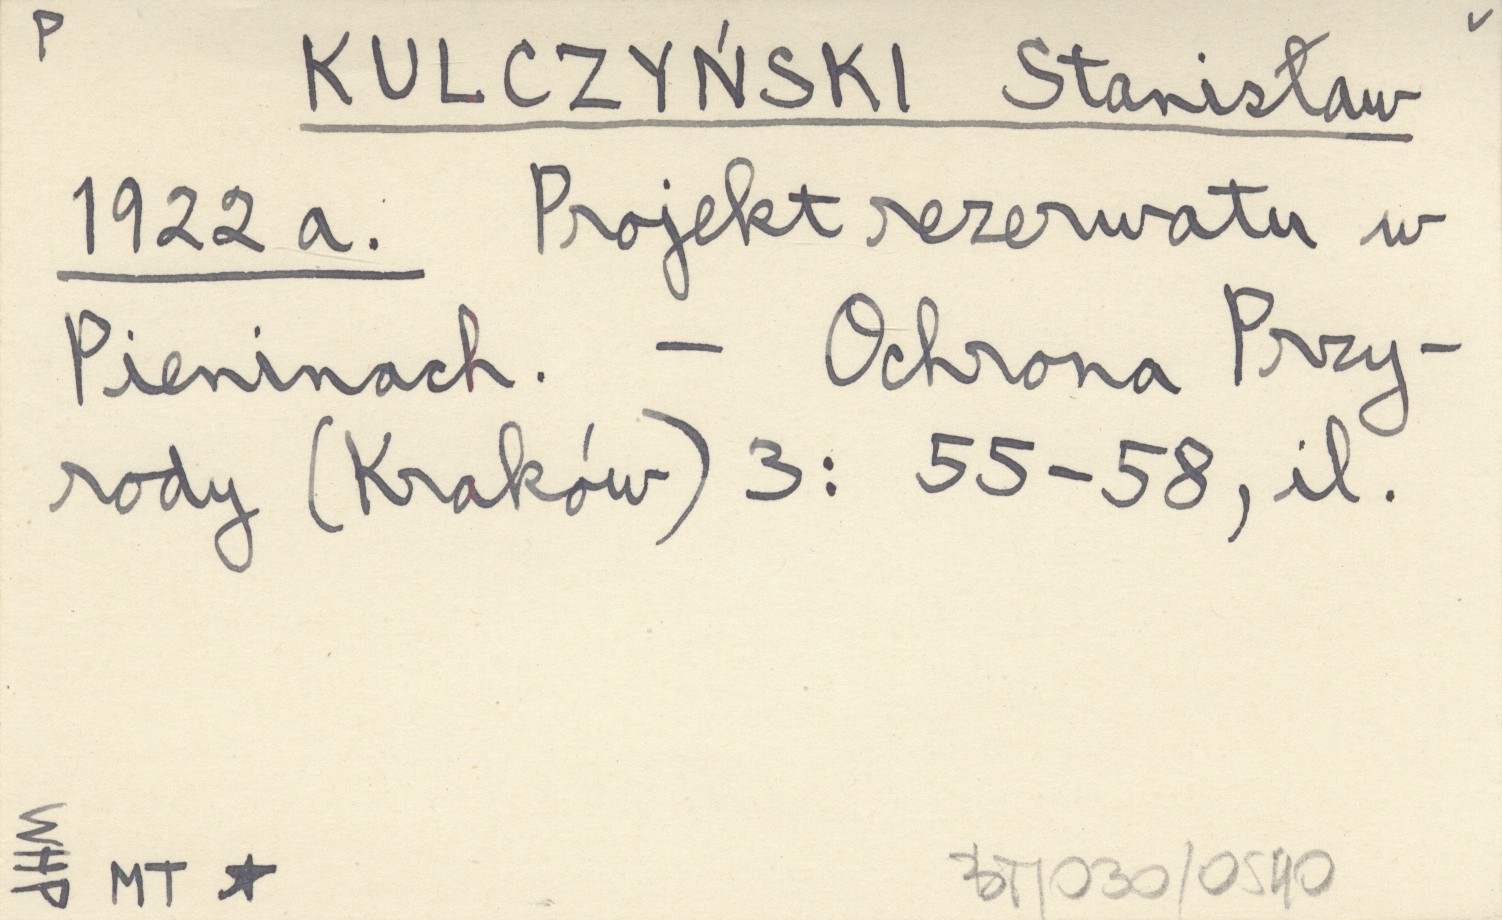 P
v
KULCZYŃSKI Stanisław
1922 a. Projekt rezerwatu w
Pieninach. — Ochrona Przy-
rody (Kraków) 3: 55-58, il.
WHP
MT ★
/030/0540